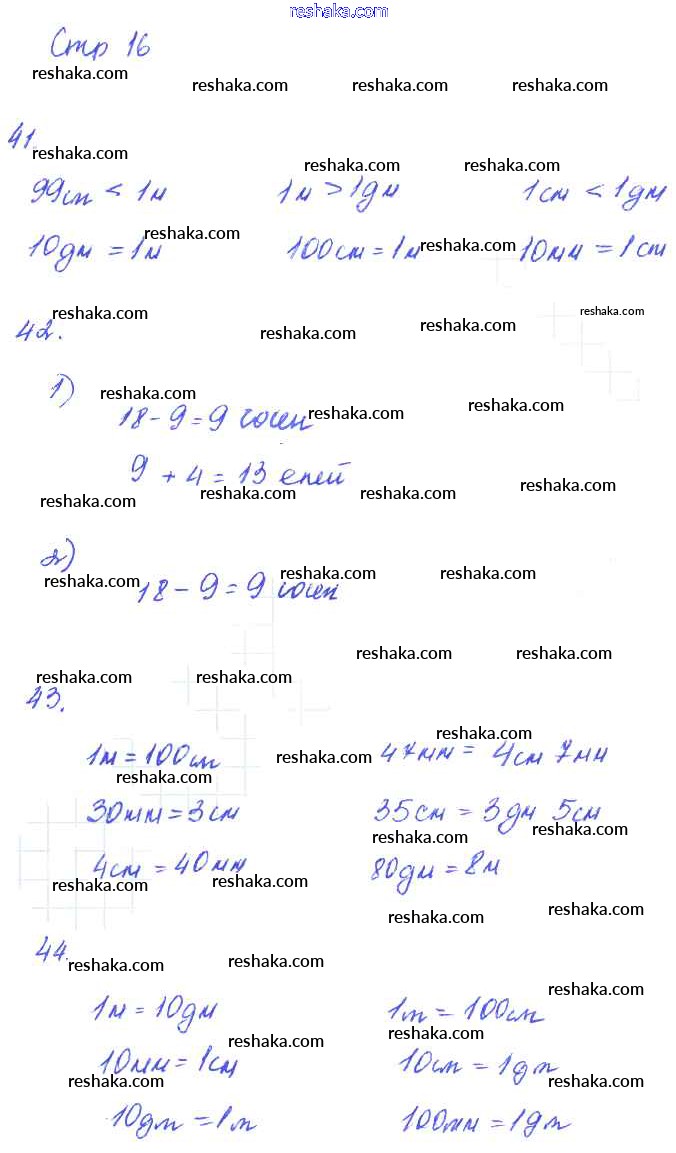 reshaka.com
Стр 16
reshaka.com reshaka.com reshaka.com reshaka.com
41.
reshaka.com reshaka.com reshaka.com
99см < 1м 1м > 1дм 1см < 1дм
reshaka.com reshaka.com reshaka.com
10дм = 1м 100см = 1м 10мм = 1см
reshaka.com reshaka.com reshaka.com
42.
reshaka.com
1)
reshaka.com reshaka.com reshaka.com
18 - 9 = 9 сосен
9 + 4 = 13 елей
reshaka.com reshaka.com reshaka.com reshaka.com
2)
reshaka.com reshaka.com reshaka.com
18 - 9 = 9 сосен
reshaka.com reshaka.com
reshaka.com reshaka.com
43.
reshaka.com
1м = 100см reshaka.com 47мм = 4см 7мм
reshaka.com
30мм = 3см 35см = 3дм 5см
reshaka.com reshaka.com
4см = 40мм 80дм = 8м
reshaka.com reshaka.com
reshaka.com reshaka.com
44.
reshaka.com reshaka.com
reshaka.com
1м = 10дм 1м = 100см
reshaka.com reshaka.com
10мм = 1см 10см = 1дм
reshaka.com reshaka.com reshaka.com
10дм = 1м 100мм = 1дм